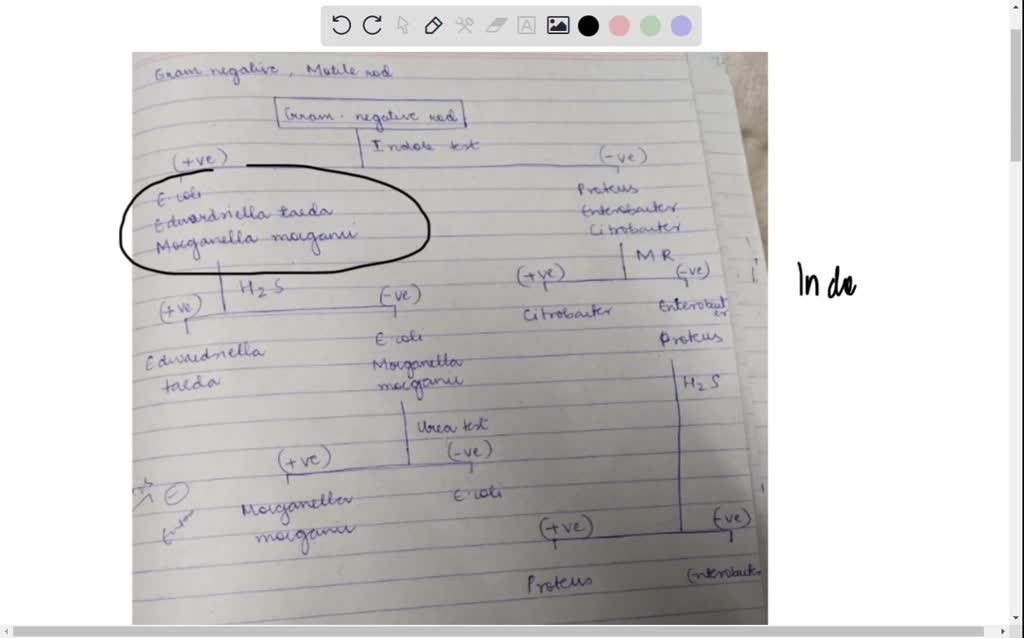 Gram negative, Motile rod
Gram negative rod
Indole test
(+ve)
(-ve)
E coli
Edwardsiella taeda
Morganella morganii
Proteus
Enterobacter
Citrobacter
H2S
MR
(+ve)
(-ve)
(+ve)
(-ve)
Edwardsiella
taeda
E coli
Morganella
morganii
Citrobacter
Enterobact
er
Proteus
Indo
Urea test
(+ve)
(-ve)
Morganella
morganii
E coli
H2S
(+ve)
(-ve)
Proteus
Enterobacter